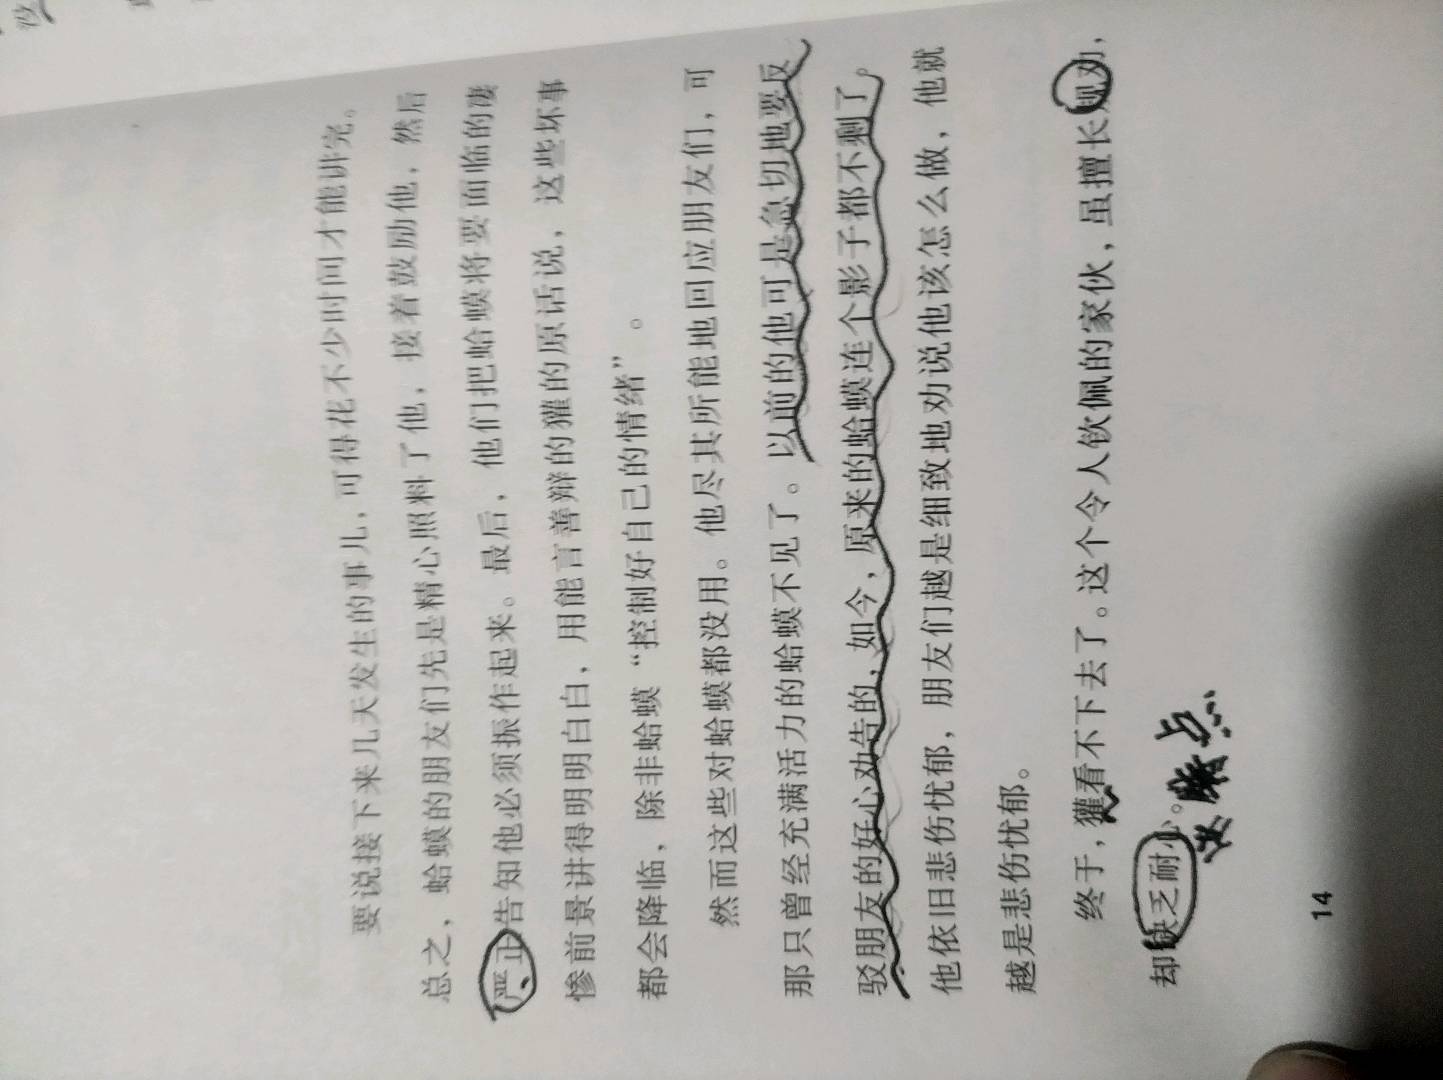 要说接下来几天发生的事儿，可得花不少时间才能讲完。
总之，蛤蟆的朋友们先是精心照料了他，接着鼓励他，然后
严正告知他必须振作起来。最后，他们把蛤蟆将要面临的凄
惨前景讲得明明白白，用能言善辩的獾的原话说，这些坏事
都会降临，除非蛤蟆“控制好自己的情绪”。
然而这些对蛤蟆都没用。他尽其所能地回应朋友们，可
那只曾经充满活力的蛤蟆不见了。以前的他可是急切地要反
驳朋友的好心劝告的，如今，原来的蛤蟆连个影子都不剩了。
他依旧悲伤忧郁，朋友们越是细致地劝说他该怎么做，他就
越是悲伤忧郁。
终于，獾看不下去了。这个令人钦佩的家伙，虽擅长规劝，
却缺乏耐心。
14